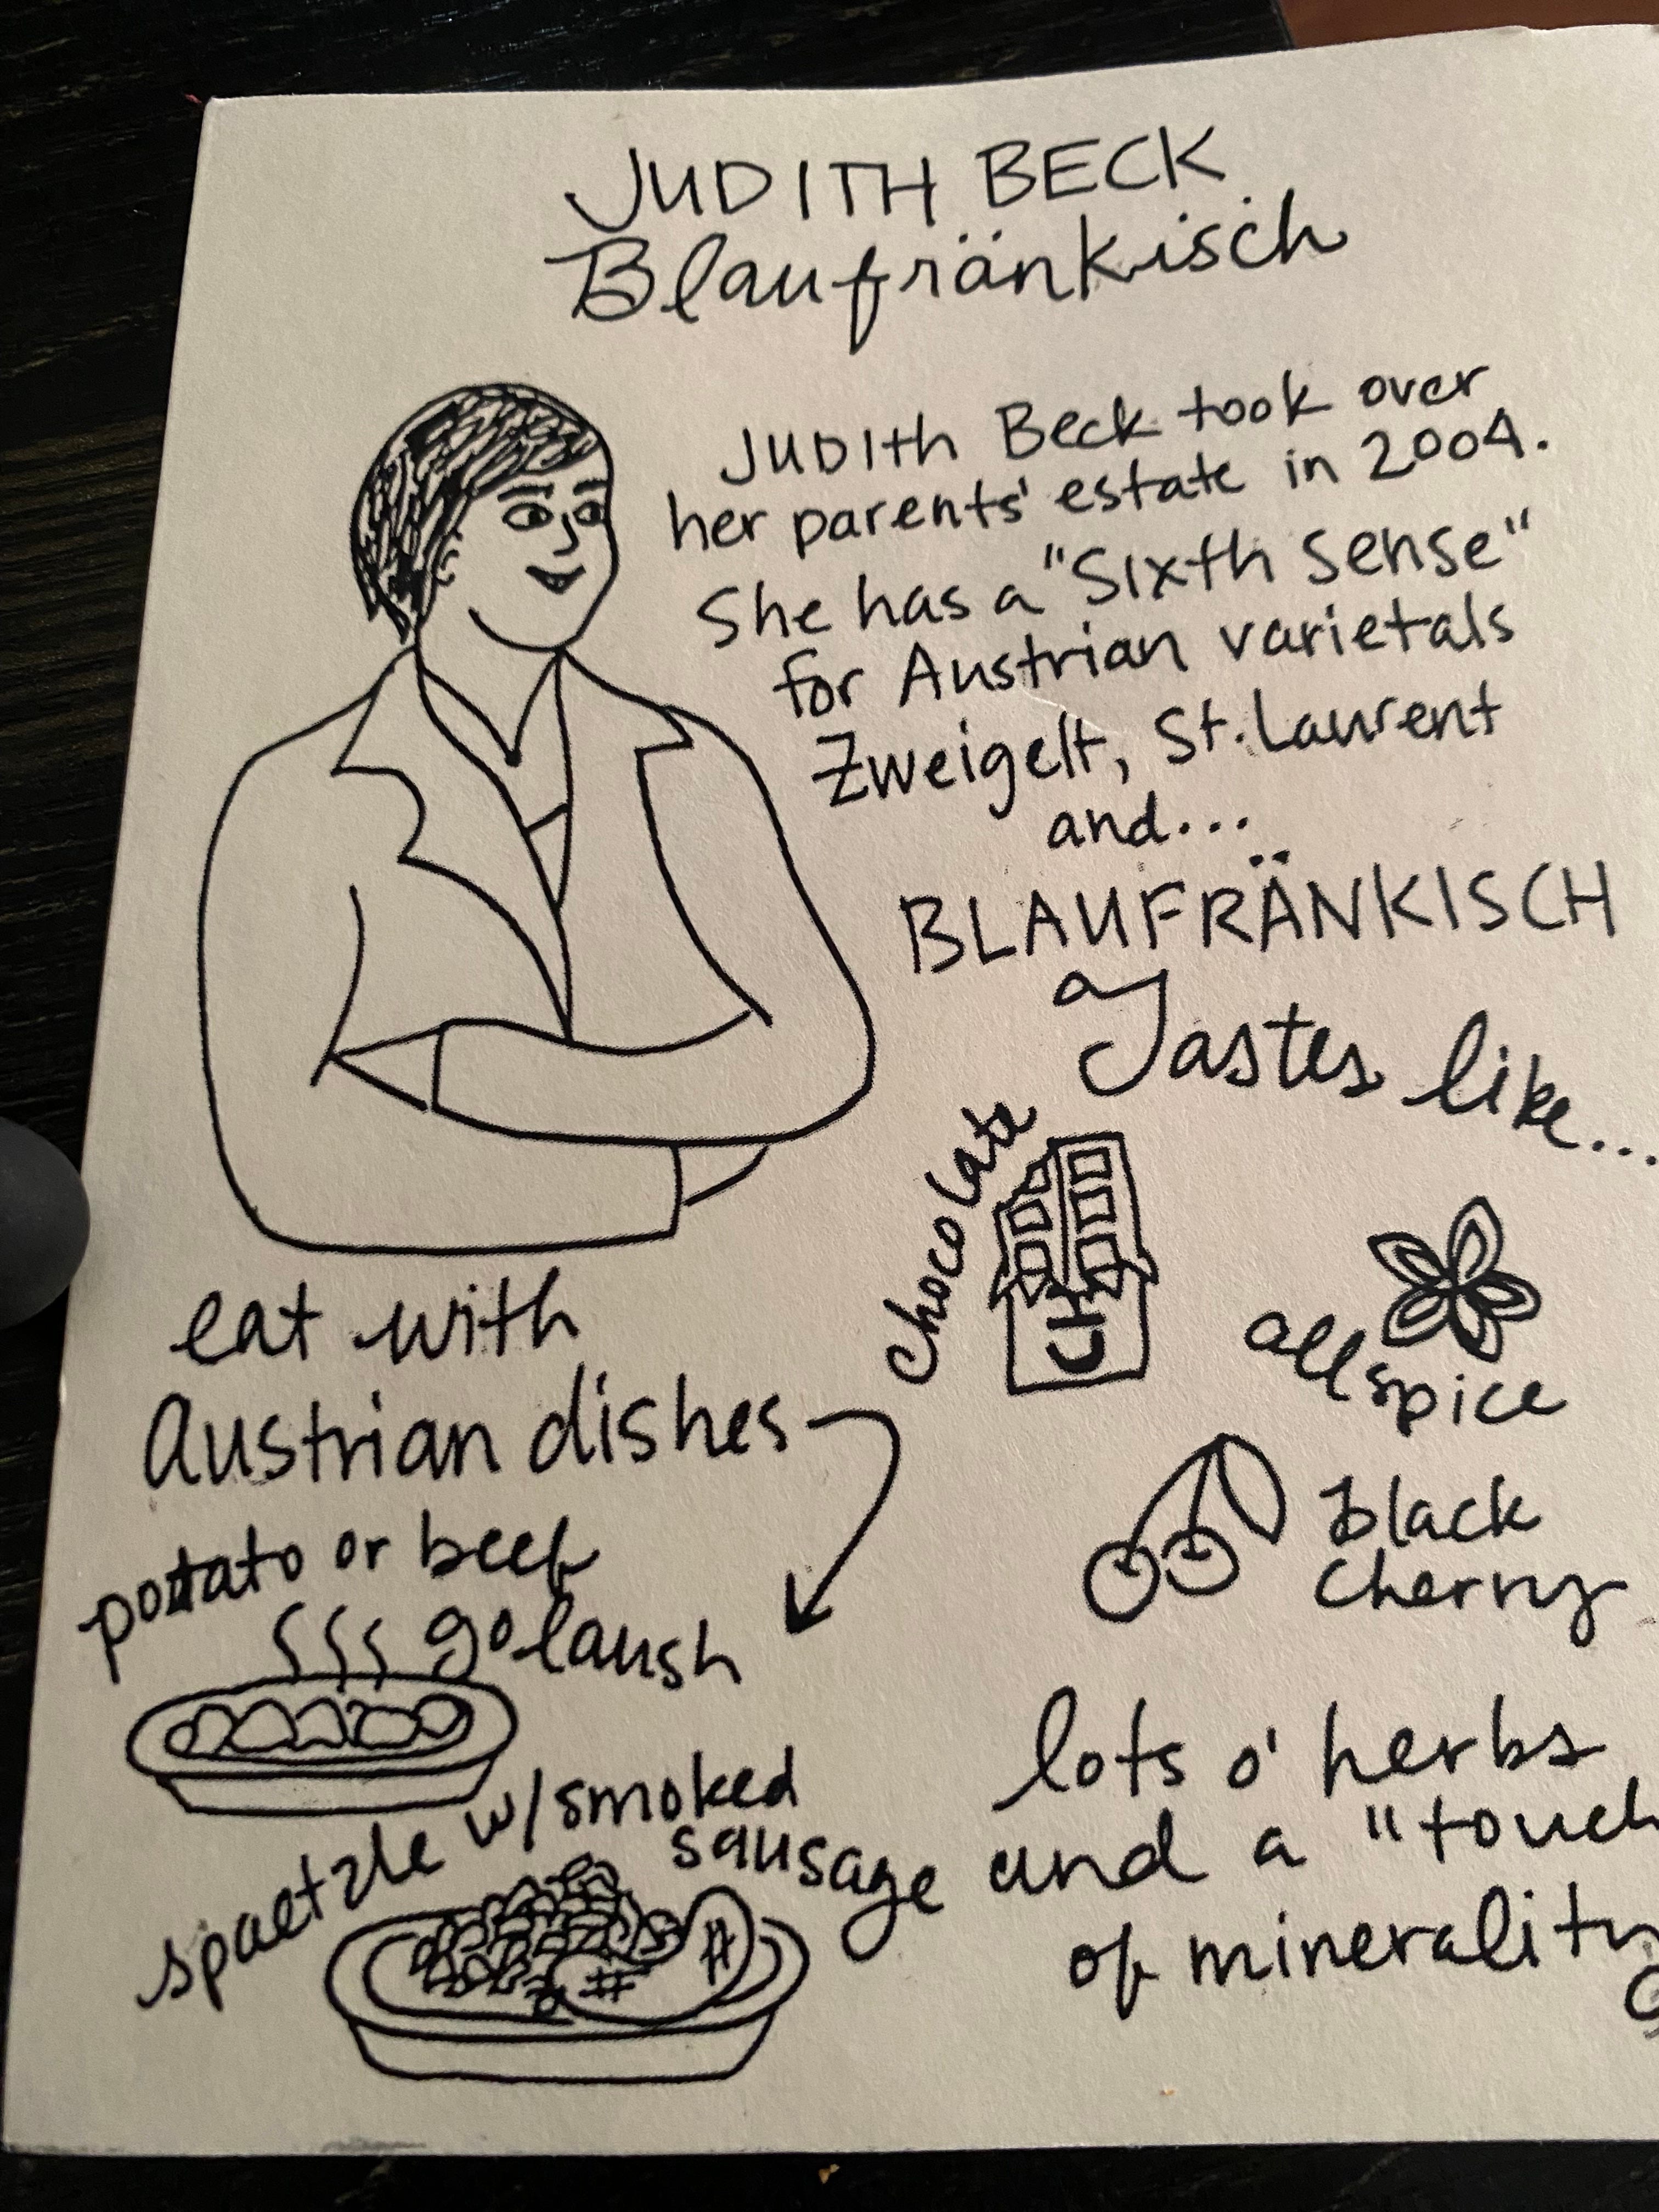 JUDITH BECK
Blaufränkisch
JUDITH Beck took over
her parents' estate in 2004.
She has a "Sixth sense"
for Austrian varietals
Zweigelt, St. Laurent
and...
BLAUFRÄNKISCH
Tastes like...
chocolate
CH
allspice
black
cherry
lots o' herbs
and a "touch
of minerality
eat with
Austrian dishes
potato or beef
golaush
spaetzle w/smoked
sausage